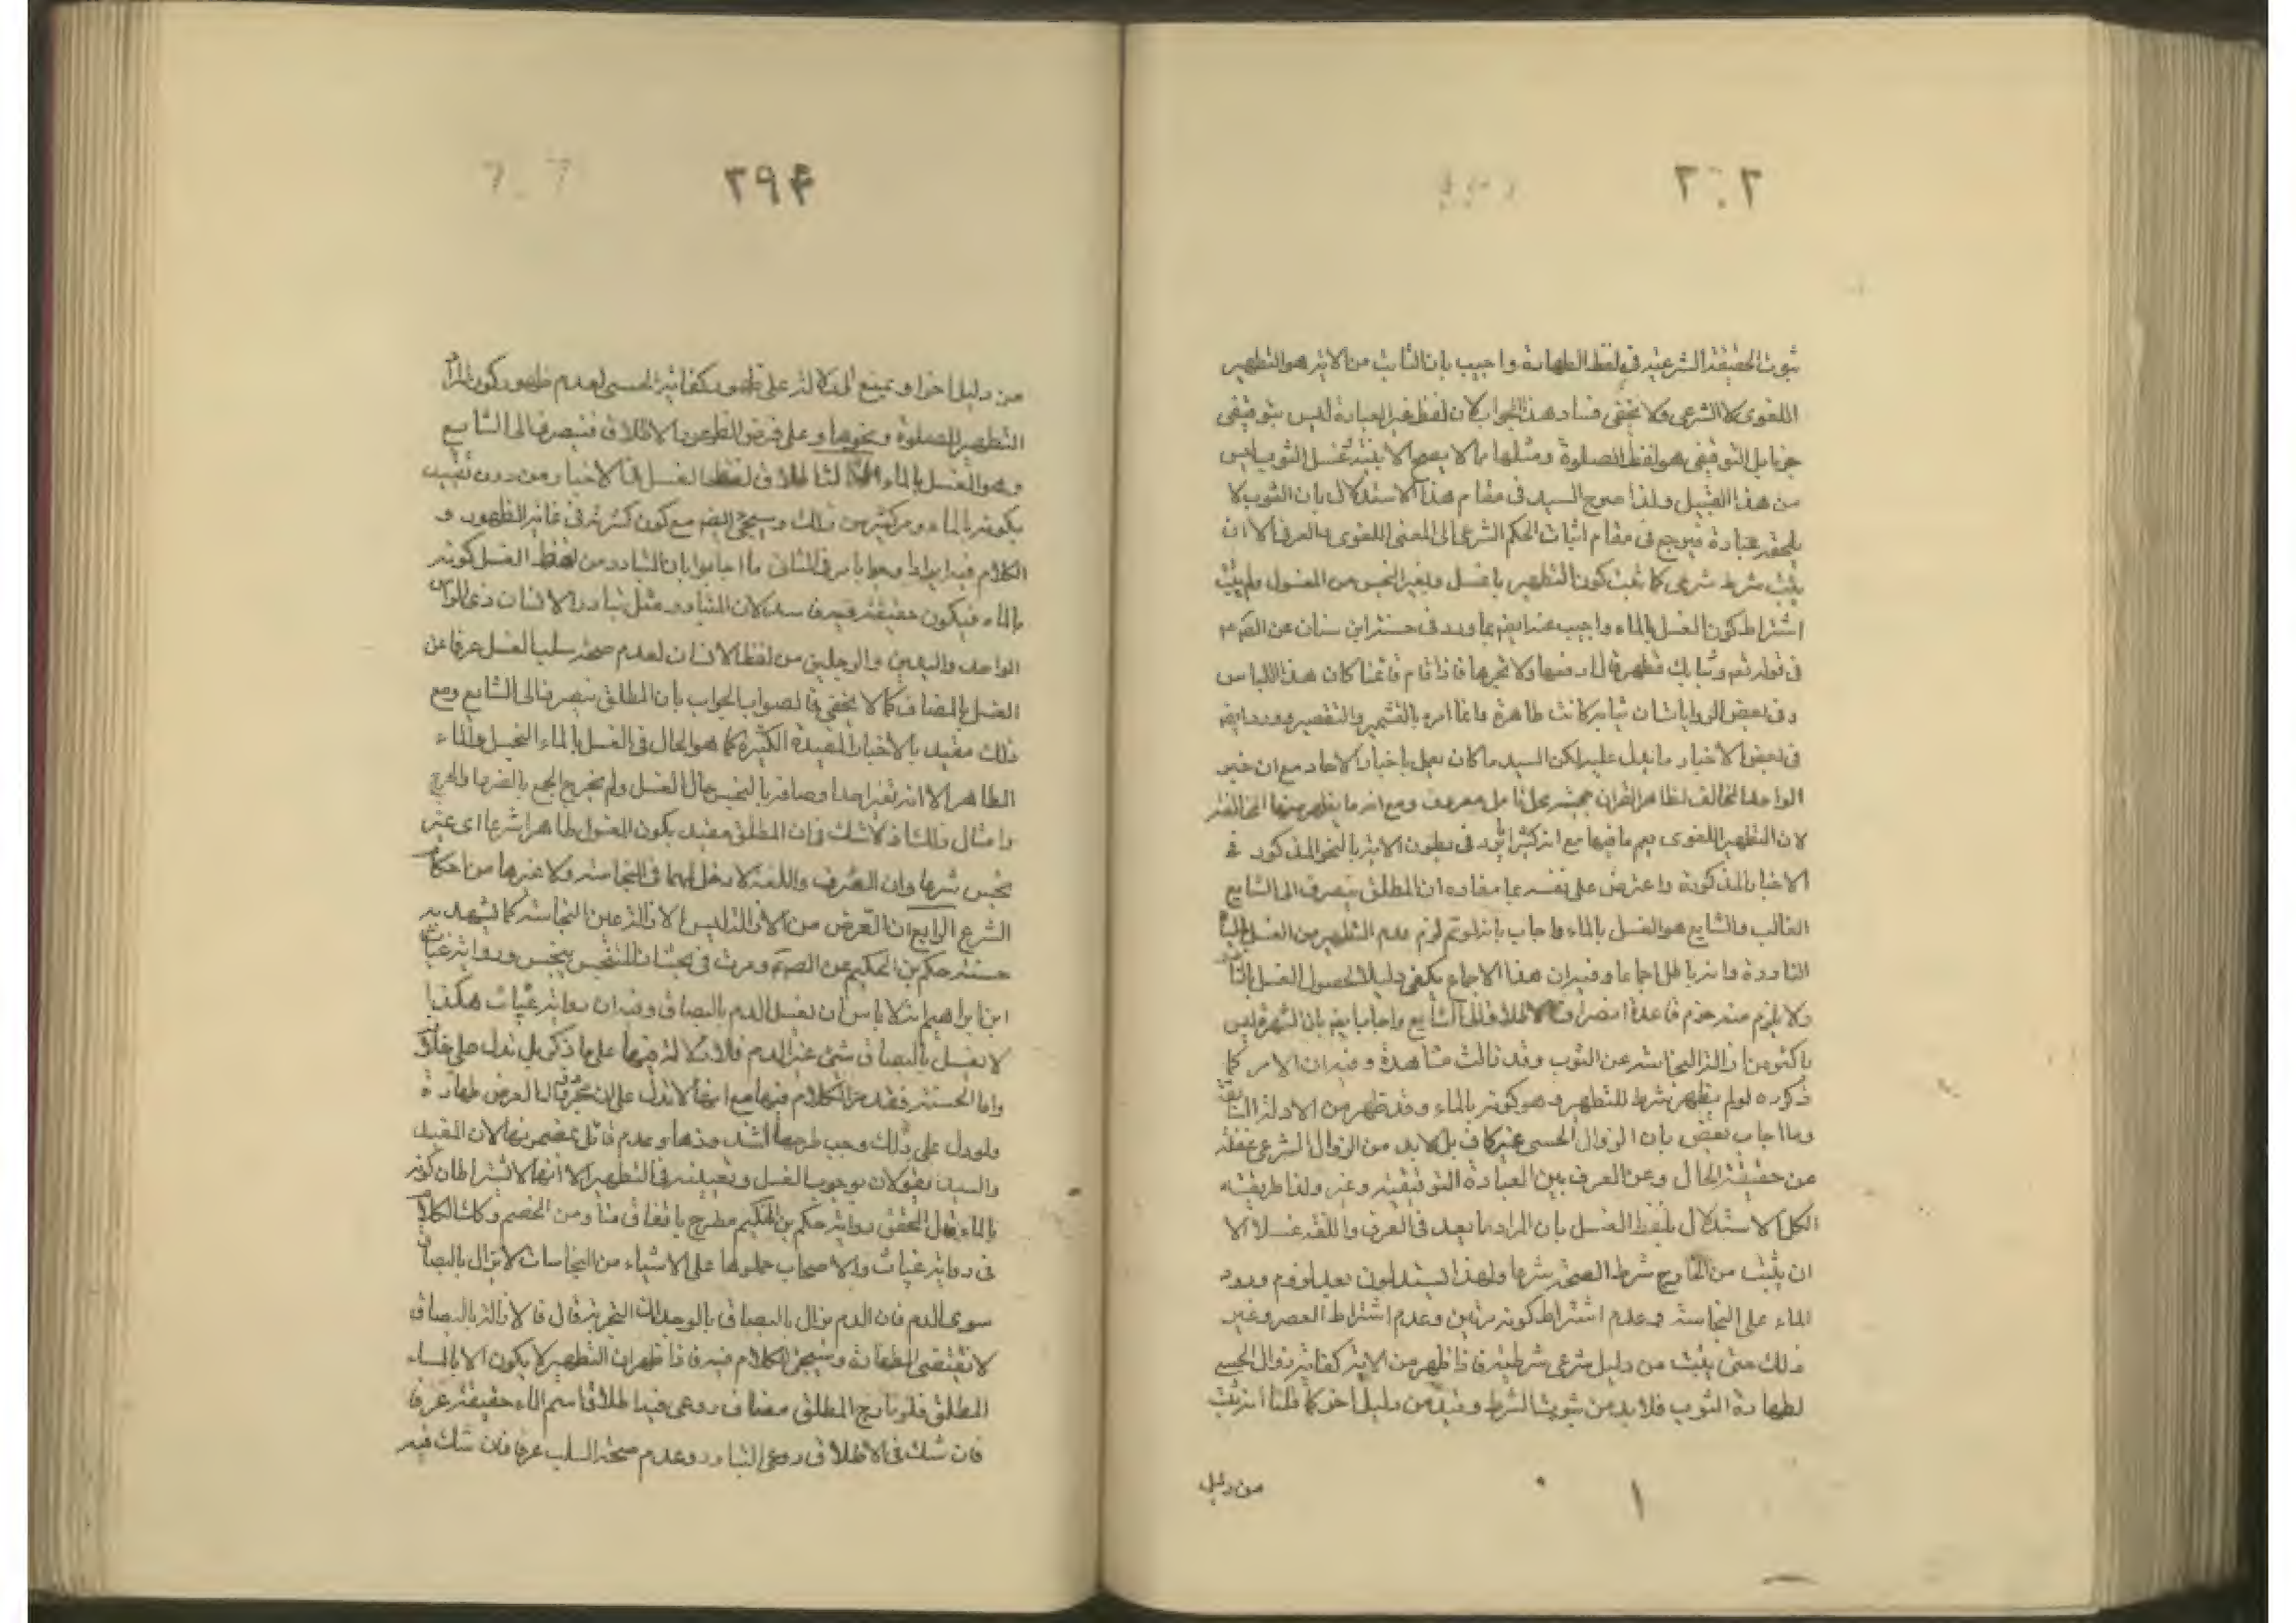 ٣٠٢
ثبوت الحقيقة الشرعية فى لفظ الطهارة واجيب بان الثابت من الاية هو التطهير
اللغوى لا الشرعى ولا يخفى فساد هذا الجواب لان لفظ غير العبادة ليس بتوقيفى
جزما بل التوقيفى هو لفظ الصلوة ومثلها مما لا يصح الا بنية غسل الثوب ليس
من هذا القبيل ولذا صرح السيد فى مقام هذا الاستدلال بان الثوب لا
يلحقه عبادة فيرجع فى مقام اثبات الحكم الشرعى الى المعنى اللغوى والعرفى الا ان
يثبت شرط شرعى كما ثبت كون التطهير بالغسل وبغير النجس من المغسول ولم يثبت
اشتراط كون الغسل بالماء واجيب عنه ايضا بما ورد فى حسنة ابن سنان عن الصم
فى قوله تعم وثيابك فطهر قال ارفعها ولا تجرها فاذا قام قائمنا كان هذا اللباس
وفى بعض الروايات ان ثيابه كانت طاهرة وانما امره بالتشمير والتقصير وورد ايضا
فى بعض الاخبار ما يدل عليه لكن السيد ما كان يعمل باخبار الاحاد مع ان خبر
الواحد المخالف لظاهر القران حجيته محل تامل معروف ومع انه ما يظهر منها المخالفة
لان التطهير اللغوى يعم ما فيها مع انه كثيرا يرد فى بطون الاية بالنحو المذكور فى
الاخبار المذكورة واعترض على نفسه بما مفاده ان المطلق ينصرف الى الشايع
الغالب والشايع هو الغسل بالماء واجاب بانه لو تم لزم عدم التطهير من الغسل بالمياه
النادرة وانه باطل اجماعا وفيه ان هذا الاجماع يكفى دليلا لحصول الغسل بالنادر
ولا يلزم منه خرم قاعدة انصراف الاطلاق الى الشايع واجاب ايضا بان الشهرة ليس
باكثر من ازالة النجاسة عن الثوب وقد زالت مشاهدة وفيه ان الامر كما
ذكره لو لم يظهر شرط للتطهير وهو كونه بالماء وقد ظهر من الادلة السابقة
وما اجاب بعض بان الزوال الحسى غير كاف بل لا بد من الزوال الشرعى غفلة
عن حقيقة الحال وعن الفرق بين العبادة التوقيفية وغيره ولذا طريقة
الكل الاستدلال بلفظ الغسل بان المراد ما يعد فى العرف واللغة غسلا الا
ان يثبت من الخارج شرط الصحة شرعا ولهذا يستدلون بعد لزوم ورود
الماء على النجاسة وعدم اشتراط كونه مرتين وعدم اشتراط العصر وغير
ذلك حتى يثبت من دليل شرعى شرطيته فاذا ظهر من الاية كفاية زوال الحسى
لطهارة الثوب فلا بد من ثبوت الشرط وفيه من دليل اخر كما قلنا انه ثبت
من دليل
١
٣٩۴
من دليل اخر او بمنع الدلالة على ظهور كفاية الحسى لعدم ظهور كون المراد
التطهير للصلوة ونحوها وعلى فرض الظهور الاطلاق فينصرف الى الشايع
وهو الغسل بالماء الثالث اطلاق لفظ الغسل فى الاخبار من دون تقييد
بكونه بالماء ومر كثير من ذلك وسيجئ ايضا مع كون كثرته فى غاية الظهور و
الكلام فيه ايرادا وجوابا مر فى الثانى وما اجابوا بان التبادر من لفظ الغسل كونه
بالماء فيكون حقيقة فيه فاسد لان التبادر مثل تبادر الانسان ذى الراس
الواحد واليدين والرجلين من لفظ الانسان لعدم صحة سلب الغسل عرفا عن
الغسل بالمضاف كما لا يخفى فالصواب الجواب بان المطلق ينصرف الى الشايع ومع
ذلك مقيد بالاخبار المقيدة الكثيرة كما هو الحال فى الغسل بالماء النجس والماء
الطاهر الا انه تغير احد اوصافه بالنجس حال الغسل ولم يخرج الجمع بالضرب والفرج
وامثال ذلك اذ لا شك فى ان المطلق مقيد بكون المغسول طاهرا شرعا اى غير
نجس شرعا وان العرف واللغة لا دخل لهما فى النجاسة ولا غيرها من احكام
الشرع الرابع ان الغرض من الازالة ليس الا ازالة عين النجاسة كما يشهد به
حسنة حكم بن الحكيم عن الصم ومرت فى بحث ان المتنجس ينجس ورواية غياث
ابن ابراهيم انه لا باس ان يغسل الدم بالبصاق وفيه ان رواية غياث هكذا
لا يغسل بالبصاق شئ غير الدم فلا دلالة فيها على ما ذكر بل تدل على خلافه
واما الحسنة فقد مر الكلام فيها مع انها لا تدل على ان مجرد زوال العرض طهارة
ولو دل على ذلك وجب طرحها لشذوذها وعدم قائل بمضمونها لان المفيد
والسيد يقولان بوجوب الغسل وتعيينه فى التطهير الا انهما لا يشترطان كونه
بالماء ونقل المحقق رواية حكم بن الحكيم مطرح باتفاق منا ومن الخصم وكذا الكلام
فى رواية غياث والاصحاب حملوها على الاشياء من النجاسات لا تزال بالبصاق
سوى الدم فان الدم يزال بالبصاق بالوجدان التجربة قال فالازالة بالبصاق
لا تقتضى الطهارة وسيجئ الكلام فيه فاذا ظهر ان التطهير لا يكون الا بالماء
المطلق فلو مازج المطلق مضاف روعى فيه اطلاق اسم الماء حقيقة عرفا
فان شك فى الاطلاق روعى التبادر وعدم صحة السلب عرفا فان شك فيه